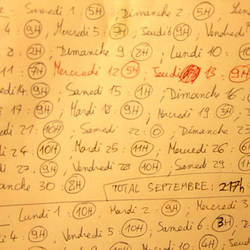 Samedi 1 5H ; Dimanche 2 5H ; Lun
4 9H ; Mercredi 5 7H ; Jeudi 6 9H ; Vendredi
8 2H ; Dimanche 9 2H ; Lundi 10 10H
11 7H ; Mercredi 12 5H ; Jeudi 13 9H
14 9H ; Samedi 15 1H ; Dimanche 16
17 9H ; Mardi 18 9H ; Mercredi 19 3H
21 10H ; Samedi 22 0 ; Dimanche
24 10H ; Mardi 25 11H ; Mercredi 26 6H
9H ; Vendredi 28 10H ; Samedi 29
anche 30 2H TOTAL SEPTEMBRE : 217h
Lundi 1 10H ; Mardi 2 9H ; Mercredi 3
4 9H ; Vendredi 5 10H ; Samedi 6 3H
10H ; Mardi 9H